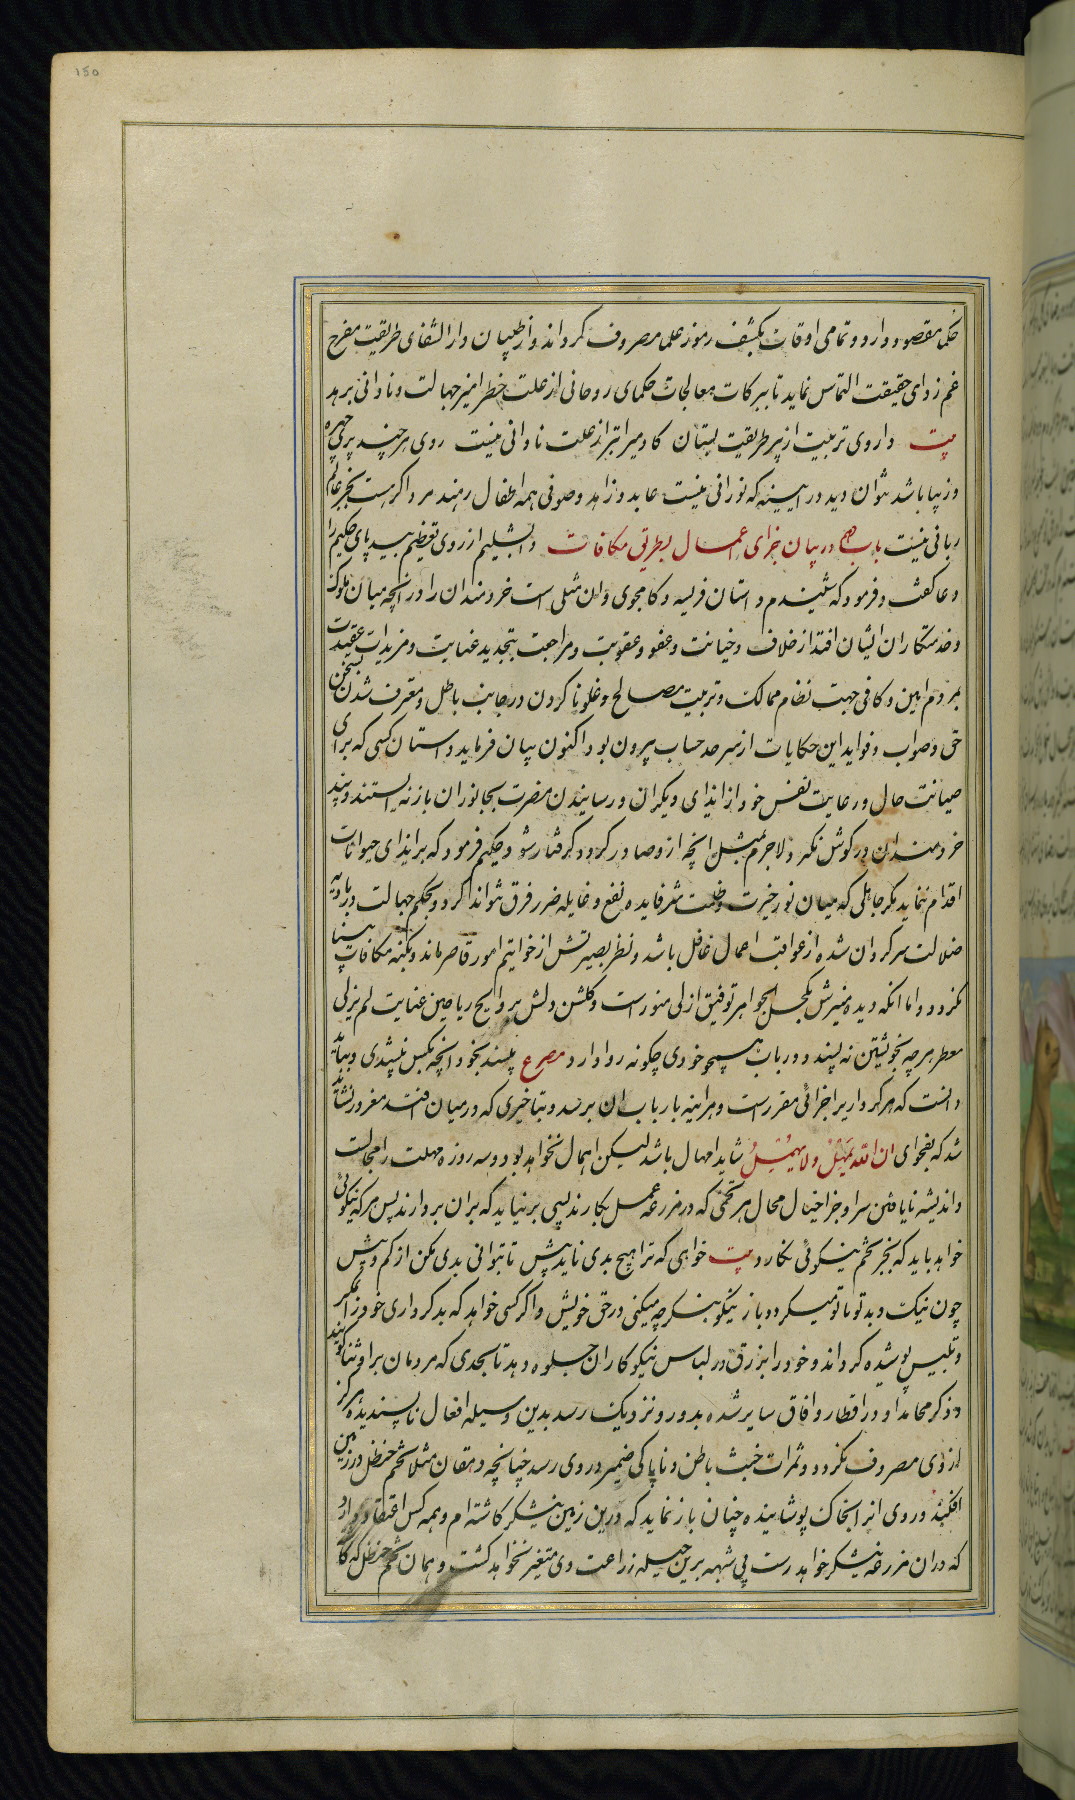 150
حکما مقصود دارد و تمامی اوقات بکشف رموز علما مصروف گرداند و از طبیبان دار الشفای طریقت مفرح
غم زدای حقیقت التماس نماید تا ببرکات معالجات حکمای روحانی از علت خطر آمیز جهالت و نادانی برهد
بیت داروی تربیت از پیر طریقت بستان کادمی را بتر از علت نادانی نیست روی هر چند پری چهره
و زیبا باشد نتوان دید در آیینه که نورانی نیست عابد و زاهد و صوفی همه اطفال رهند مرد اگر هست بجز عالم
ربانی نیست باب در بیان جزای اعمال بطریق مکافات دابشلیم از روی تعظیم بید پای حکیم را
دعا گفت و فرمود که شنیدم داستان فریسه و کامجوی و آن مثلی است خردمندان را در آنچه میان ملوک
و خدمتکاران ایشان افتد از خلاف و خیانت و عفو و عقوبت و مراجعت بتجدید عنایت و مزیدات عقیدت
بمردم امین و کافی جهت نظام ممالک و تربیت مصالح و غلو نا کردن در جانب باطل و معترف شدن بسخن
حق و صواب و فواید این حکایات از سرحد حساب بیرون بود اکنون بیان فرماید داستان کسی که برای
صیانت حال و رعایت نفس خود از ایذای دیگران و رسانیدن مضرت بجانوران باز نه ایستد و پند
خردمندان در گوش نکند و لاجرم بمثل آنچه ازو صادر گردد گرفتار شود حکیم فرمود که بر ایذای حیوانات
اقدام ننماید مگر جاهلی که میان نور خیرت و ظلمت شر فایده نفع و غایله ضرر فرق نتواند کرد و بحکم جهالت در بادیه
ضلالت سرگردان شده از عواقب اعمال غافل باشد و نظر بصیرتش از خواتیم امور قاصر ماند و بکنه مکافات بینا
نگردد و اما آنکه دیده ضمیرش بکحل الجواهر توفیق ازلی منورست و گلشن دلش بروایح ریاحین عنایت لم یزلی
معطر هرچه بخویشتن نه پسندد در باب همچو خودی چگونه روا دارد مصرع مپسند بخود آنچه بکس نپسندی و بباید
دانست که هر کرداری را جزائی مقررست و هر آینه بارباب آن برسد و بتاخیری که در میان افتد مغرور نشاید
شد که بفحوای ان الله یمهل و لا یهمل شاید امهال باشد لیکن اهمال نخواهد بود دو سه روزه مهلت را مجالست
و اندیشه نایافتن سزا و جزا خیال محال هر تخمی که در مزرعه عمل بکارند بسی برنیاید که بر آن بردارند پس هر که نیکوئی
خواهد باید که بجز تخم نیکوئی نکارد بیت خواهی که ترا هیچ بدی ناید پیش تا بتوانی بدی مکن از کم و بیش
چون نیک و بد تو با تو میگردد باز نیکو بنگر چه میکنی در حق خویش و اگر کسی خواهد که بد کرداری خود را بمکر
و تلبیس پوشیده گرداند و خود را بزرق در لباس نیکو کاران جلوه دهد تا بحدی که مردمان برو ثنا گویند
و ذکر محامد او در اقطار و آفاق سایر شده بدور و نزدیک رسد بدین وسیله افعال ناپسندیده هرگز
ازوی مصروف نگردد و ثمرات خبث باطن و ناپاکی ضمیر در وی رسد چنانچه دهقان مثلا تخم حنظل در زمین
افکند و روی آنرا بخاک پوشانیده چنان باز نماید که درین زمین نیشکر کاشته ام و همه کس اعتقاد دارد
که در آن مزرعه نیشکر خواهد رست بی شبهه برین حیله زراعت وی متغیر نخواهد گشت و همان تخم حنظل که کا